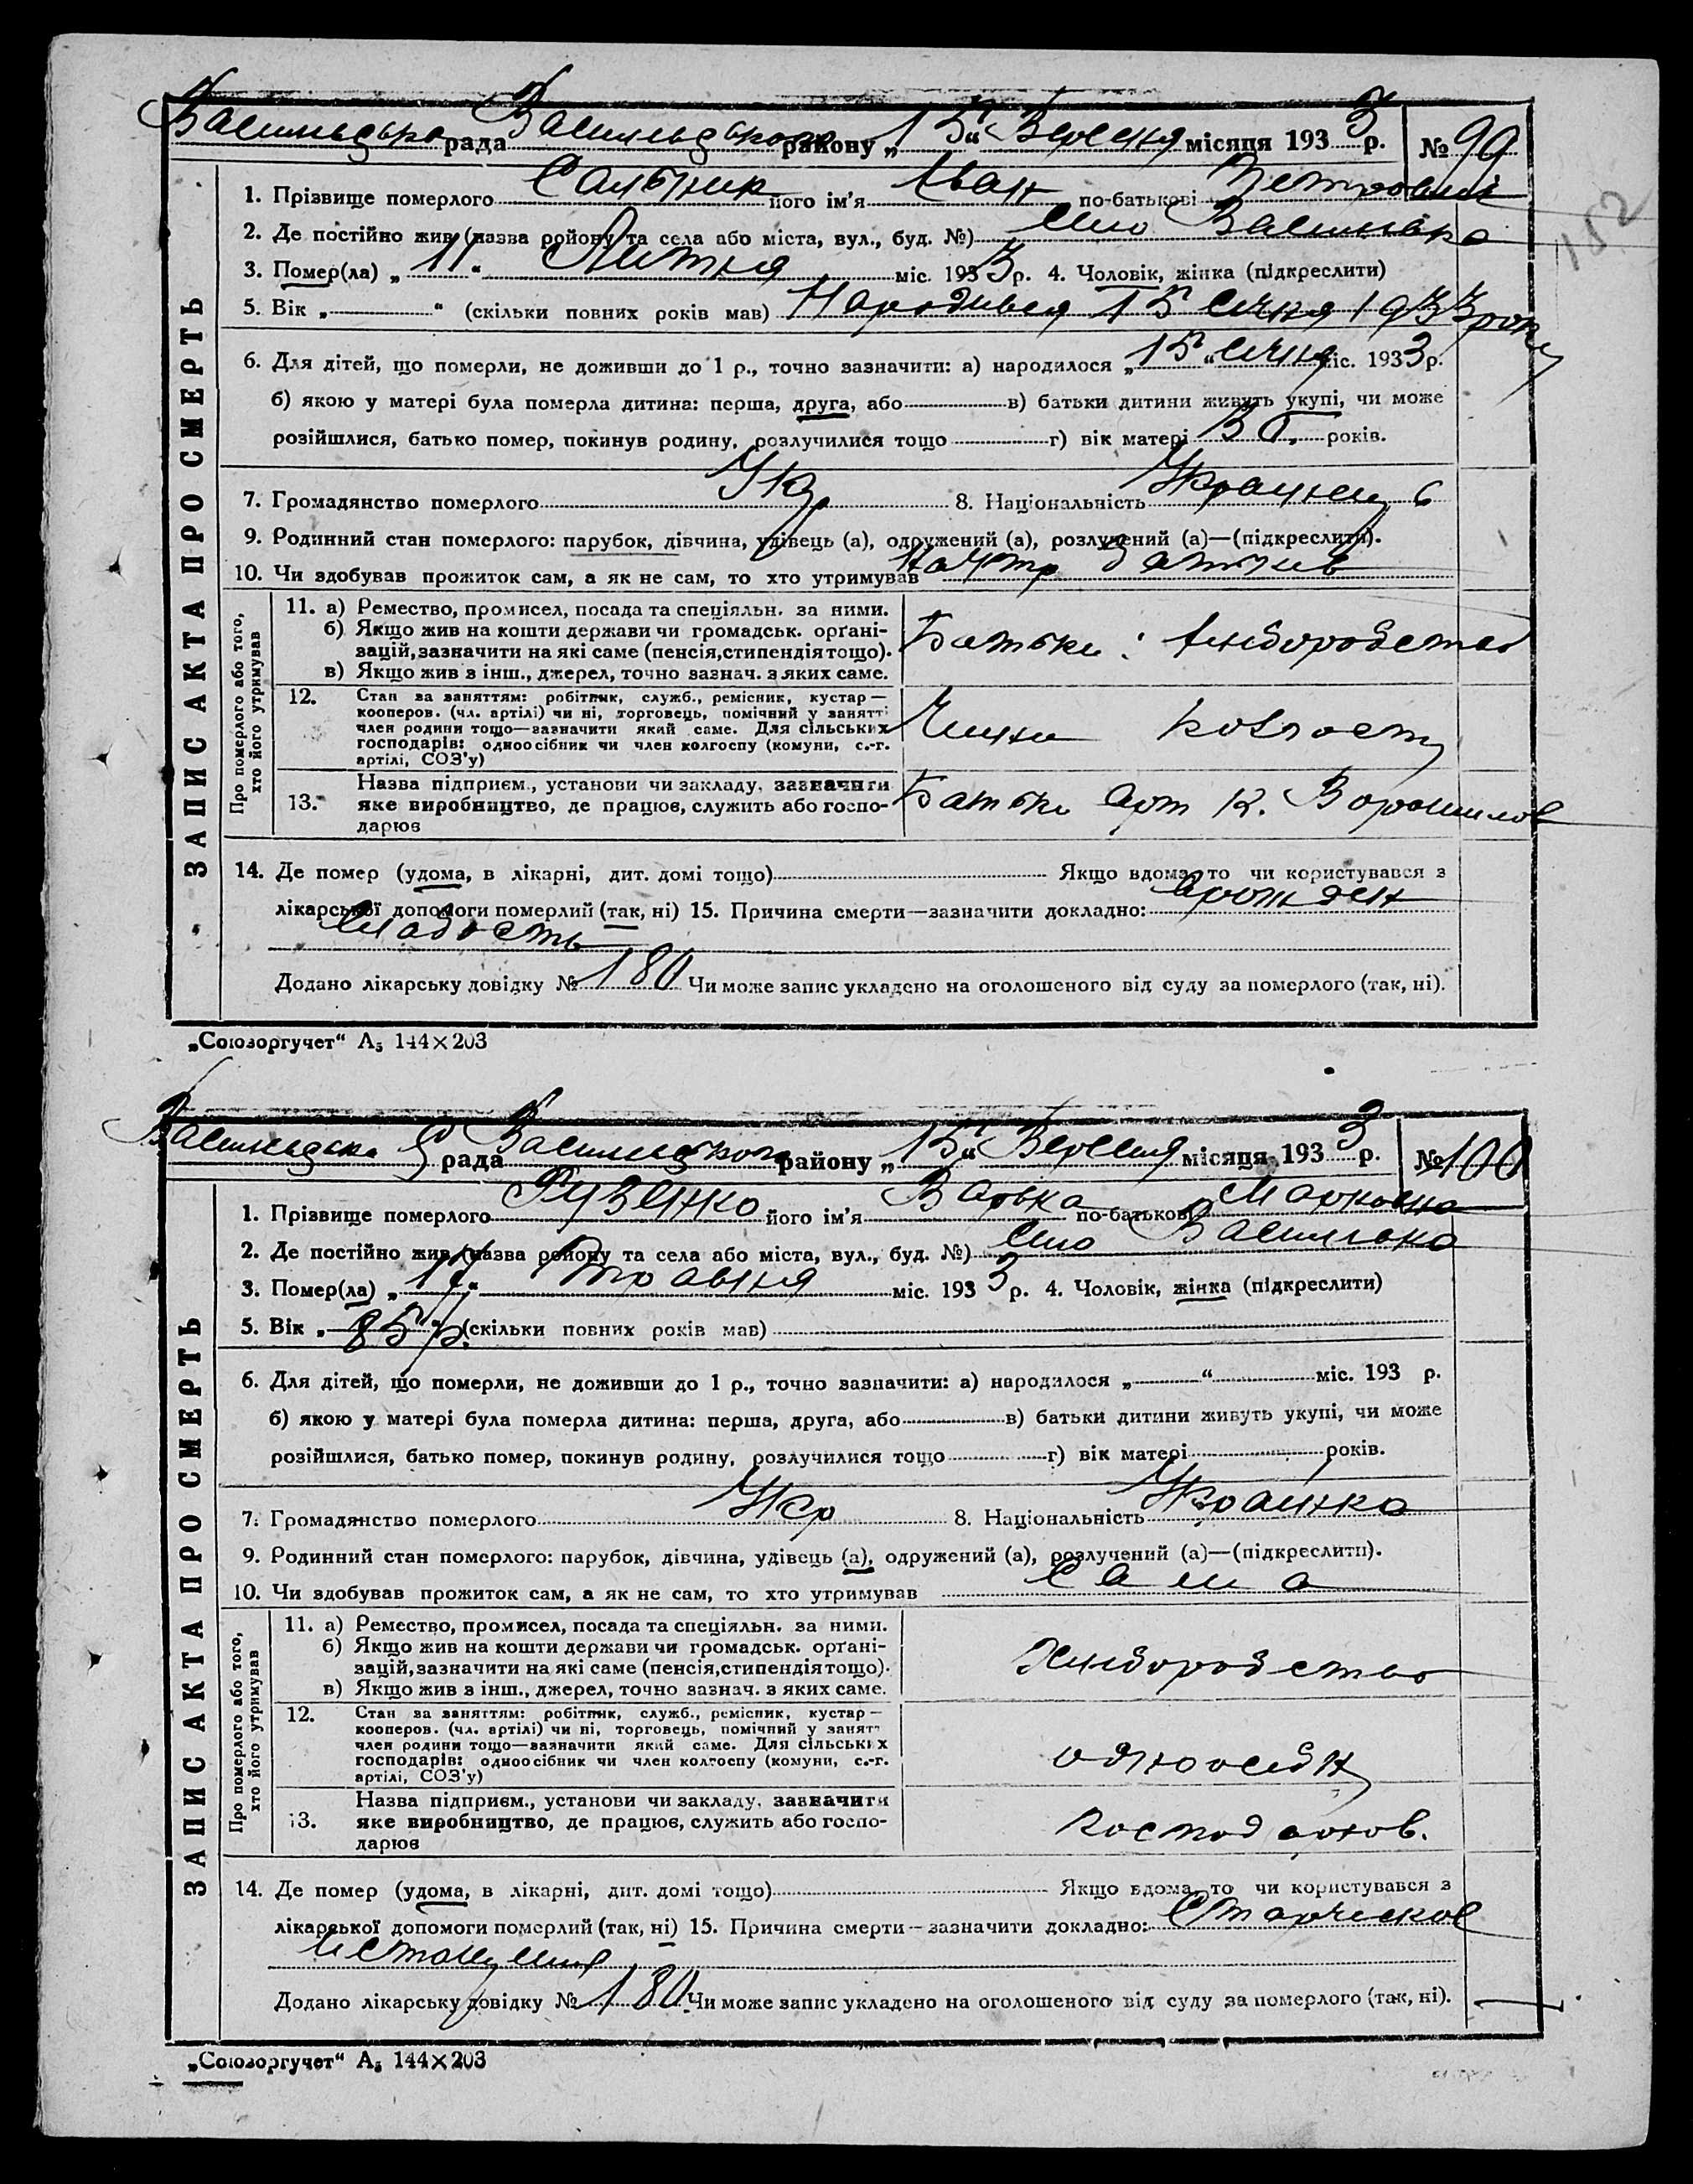 рада району „15“ Вересня місяця 1933 р. № 99
152
ЗАПИС АКТА ПРО СМЕРТЬ
1. Прізвище померлого Сальник його ім'я Іван по-батькові Петрович
2. Де постійно жив (назва ройону та села або міста, вул., буд. №) Василівка
3. Помер(ла) „11“ Липня міс. 1933 р. 4. Чоловік, жінка (підкреслити)
5. Вік „ “ (скільки повних років мав) Народився 15 січня 1933 року
6. Для дітей, що померли, не доживши до 1 р., точно зазначити: а) народилося „15“ січня міс. 1933 р.
б) якою у матері була померла дитина: перша, друга, або в) батьки дитини живуть укупі, чи може
розійшлися, батько помер, покинув родину, розлучилися тощо г) вік матері років.
7. Громадянство померлого Укр 8. Національність
9. Родинний стан померлого: парубок, дівчина, удівець (а), одружений (а), розлучений (а)—(підкреслити).
10. Чи здобував прожиток сам, а як не сам, то хто утримував
Про померлого або того,
хто його утримував
11. а) Ремество, промисел, посада та спеціяльн. за ними.
б) Якщо жив на кошти держави чи громадськ. орґані-
зацій, зазначити на які саме (пенсія, стипендія тощо).
в) Якщо жив з інш., джерел, точно зазнач. з яких саме.
Батьки: хліборобство
12. Стан за заняттям: робітник, служб., ремісник, кустар—
кооперов. (чл. артілі) чи ні, торговець, помічний у занятті
член родини тощо—зазначити який саме. Для сільських
господарів: одноосібник чи член колгоспу (комуни, с.-г.
артілі, СОЗ'у)
Члени колгоспу
13. Назва підприєм., установи чи закладу, зазначити
яке виробництво, де працює, служить або госпо-
дарює
Батьки арт К. Ворошилов
14. Де помер (удома, в лікарні, дит. домі тощо) Якщо вдома, то чи користувався з
лікарської допомоги померлий (так, ні) 15. Причина смерти—зазначити докладно: врожден
слабость
Додано лікарську довідку № 180 Чи може запис укладено на оголошеного від суду за померлого (так, ні).
„Союзоргучет“ А₅ 144×203
рада району „15“ Вересня місяця 1933 р. № 100
ЗАПИС АКТА ПРО СМЕРТЬ
1. Прізвище померлого Рубенко його ім'я Варька по-батькові Марковна
2. Де постійно жив (назва ройону та села або міста, вул., буд. №) Василівка
3. Помер(ла) „ “ Травня міс. 1933 р. 4. Чоловік, жінка (підкреслити)
5. Вік „85 р.“ (скільки повних років мав)
6. Для дітей, що померли, не доживши до 1 р., точно зазначити: а) народилося „ “ міс. 193 р.
б) якою у матері була померла дитина: перша, друга, або в) батьки дитини живуть укупі, чи може
розійшлися, батько помер, покинув родину, розлучилися тощо г) вік матері років.
7. Громадянство померлого Укр 8. Національність Українка
9. Родинний стан померлого: парубок, дівчина, удівець (а), одружений (а), розлучений (а)—(підкреслити).
10. Чи здобував прожиток сам, а як не сам, то хто утримував Сама
Про померлого або того,
хто його утримував
11. а) Ремество, промисел, посада та спеціяльн. за ними.
б) Якщо жив на кошти держави чи громадськ. орґані-
зацій, зазначити на які саме (пенсія, стипендія тощо).
в) Якщо жив з інш., джерел, точно зазнач. з яких саме.
Хліборобство
12. Стан за заняттям: робітник, служб., ремісник, кустар—
кооперов. (чл. артілі) чи ні, торговець, помічний у занятт
член родини тощо—зазначити який саме. Для сільських
господарів: одноосібник чи член колгоспу (комуни, с.-г.
артілі, СОЗ'у)
одноосібн
13. Назва підприєм., установи чи закладу, зазначити
яке виробництво, де працює, служить або госпо-
дарює
14. Де помер (удома, в лікарні, дит. домі тощо) Якщо вдома, то чи користувався з
лікарської допомоги померлий (так, ні) 15. Причина смерти—зазначити докладно: Старческое
истощение
Додано лікарську довідку № 180 Чи може запис укладено на оголошеного від суду за померлого (так, ні).
„Союзоргучет“ А₅ 144×203